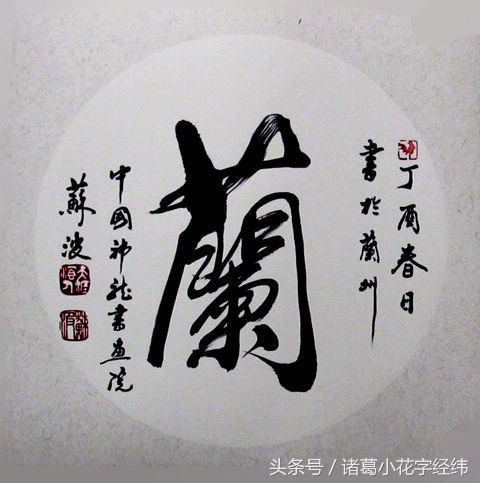 丁酉春日
書於蘭州
蘭
中國神龍書畫院
蘇波
头条号／诸葛小花字经纬